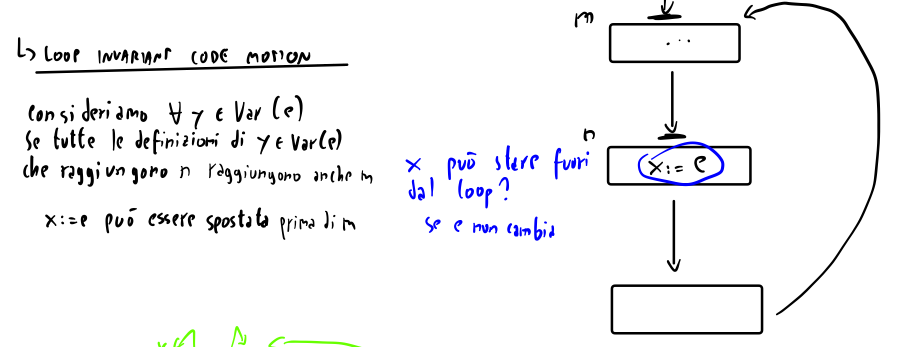 ↳ LOOP INVARIANT CODE MOTION
consideriamo ∀ y ∈ Var(e)
se tutte le definizioni di y ∈ Var(e)
che raggiungono n raggiungono anche m
x:=e può essere spostata prima di m
x può stare fuori
dal loop?
se e non cambia
m
...
n
x:= e